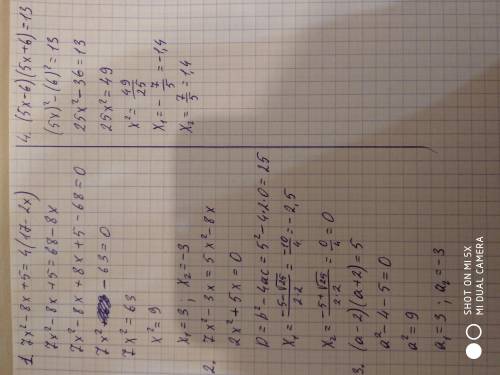 1. 7x²-8x+5=4(17-2x)
7x²-8x+5=68-8x
7x²-8x+8x+5-68=0
7x² -63=0
7x²=63
x²=9
x₁=3; x₂=-3
2. 7x²-3x=5x²-8x
2x²+5x=0
D=b²-4ac=5²-4·2·0=25
x₁=(-5-√25)/(2·2)=-10/4=-2,5
x₂=(-5+√25)/(2·2)=0/4=0
3. (a-2)(a+2)=5
a²-4-5=0
a²=9
a₁=3; a₂=-3
4. (5x-6)(5x+6)=13
(5x)²-(6)²=13
25x²-36=13
25x²=49
x²=49/25
x₁=-7/5=-1,4
x₂=7/5=1,4
SHOT ON MI 5X
MI DUAL CAMERA